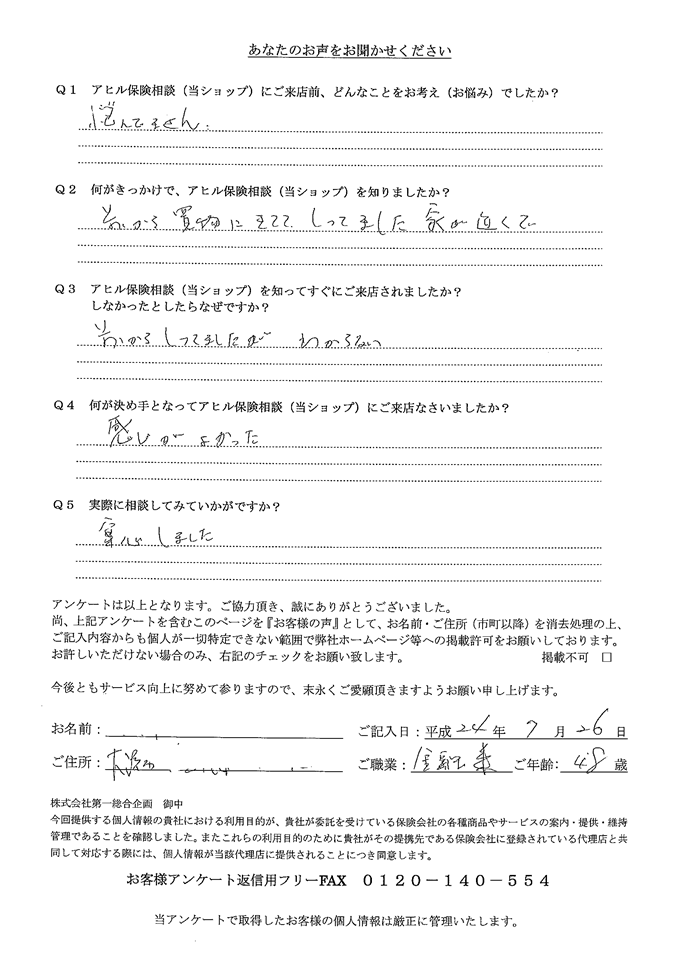 あなたのお声をお聞かせください
Q1 アヒル保険相談(当ショップ)にご来店前、どんなことをお考え(お悩み)でしたか?
悩んでません.
Q2 何がきっかけで、アヒル保険相談(当ショップ)を知りましたか?
前から 買物に きてて しってました 家が近くで
Q3 アヒル保険相談(当ショップ)を知ってすぐにご来店されましたか?
しなかったとしたらなぜですか?
前からしってましたが わからない
Q4 何が決め手となってアヒル保険相談(当ショップ)にご来店なさいましたか?
感じが よかった
Q5 実際に相談してみていかがですか?
安心しました
アンケートは以上となります。ご協力頂き、誠にありがとうございました。
尚、上記アンケートを含むこのページを『お客様の声』として、お名前・ご住所(市町以降)を消去処理の上、
ご記入内容からも個人が一切特定できない範囲で弊社ホームページ等への掲載許可をお願いしております。
お許しいただけない場合のみ、右記のチェックをお願い致します。 掲載不可 □
今後ともサービス向上に努めて参りますので、末永くご愛顧頂きますようお願い申し上げます。
お名前: ご記入日:平成 24 年 7 月 26 日
ご住所: ご職業: ご年齢: 48 歳
株式会社第一総合企画 御中
今回提供する個人情報の貴社における利用目的が、貴社が委託を受けている保険会社の各種商品やサービスの案内・提供・維持
管理であることを確認しました。またこれらの利用目的のために貴社がその提携先である保険会社に登録されている代理店と共
同して対応する際には、個人情報が当該代理店に提供されることにつき同意します。
お客様アンケート返信用フリーFAX 0120-140-554
当アンケートで取得したお客様の個人情報は厳正に管理いたします。